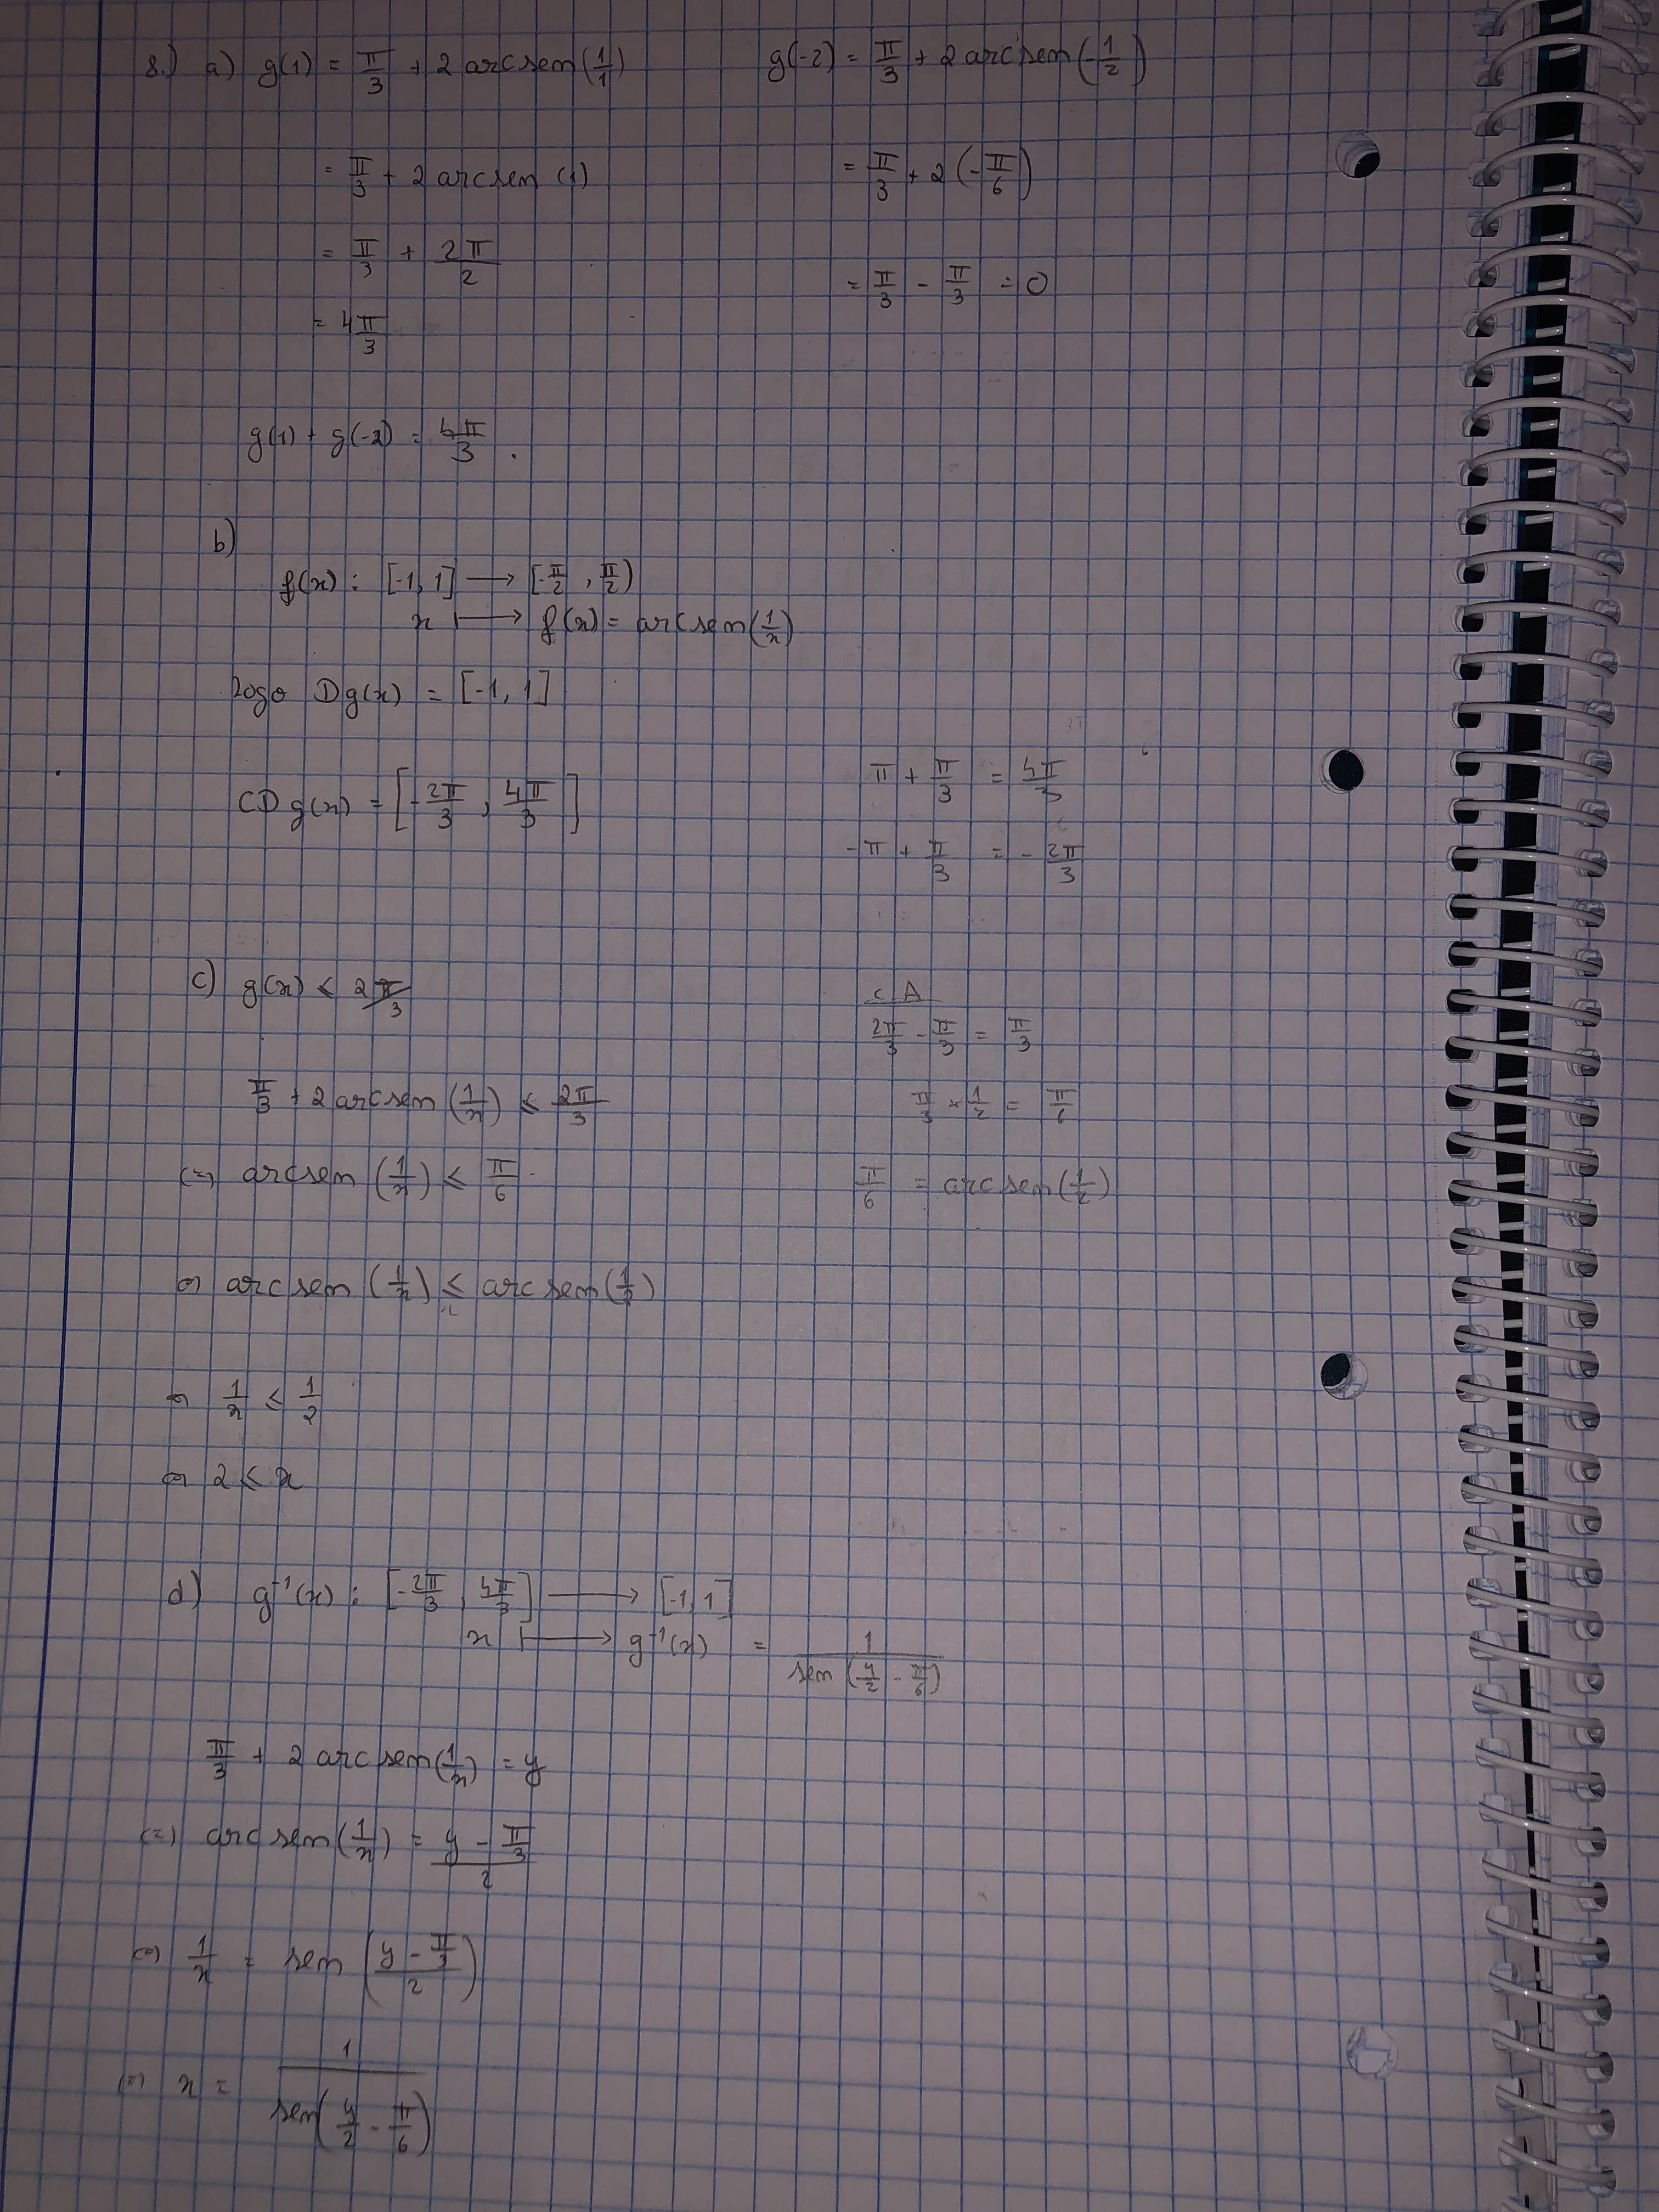 8.) a) g(1) = π/3 + 2 arcsen(1/1)
= π/3 + 2 arcsen (1)
= π/3 + 2π/2
= 4π/3
g(-2) = π/3 + 2 arcsen(-1/2)
= π/3 + 2 (-π/6)
= π/3 - π/3 = 0
g(1) + g(-2) = 4π/3 .
b)
f(x) : [-1, 1] ⟶ [-π/2 , π/2)
x ⟼ f(x) = arcsen(1/x)
logo Dg(x) = [-1, 1]
CD g(x) = [-2π/3 , 4π/3]
π + π/3 = 4π/3
-π + π/3 = -2π/3
c) g(x) ≤ 2π/3
π/3 + 2 arcsen(1/x) ≤ 2π/3
(=) arcsen (1/x) ≤ π/6
(=) arcsen (1/x) ≤ arcsen(1/2)
(=) 1/x ≤ 1/2
(=) 2 ≤ x
C A
2π/3 - π/3 = π/3
π/3 × 1/2 = π/6
π/6 = arcsen(1/2)
d) g⁻¹(x) : [-2π/3 , 4π/3] ⟶ [-1, 1]
x ⟼ g⁻¹(x) = 1/sen(y/2 - π/6)
π/3 + 2 arcsen(1/x) = y
(=) arcsen(1/x) = (y - π/3)/2
(=) 1/x = sen ((y - π/3)/2)
(=) x = 1/sen(y/2 - π/6)